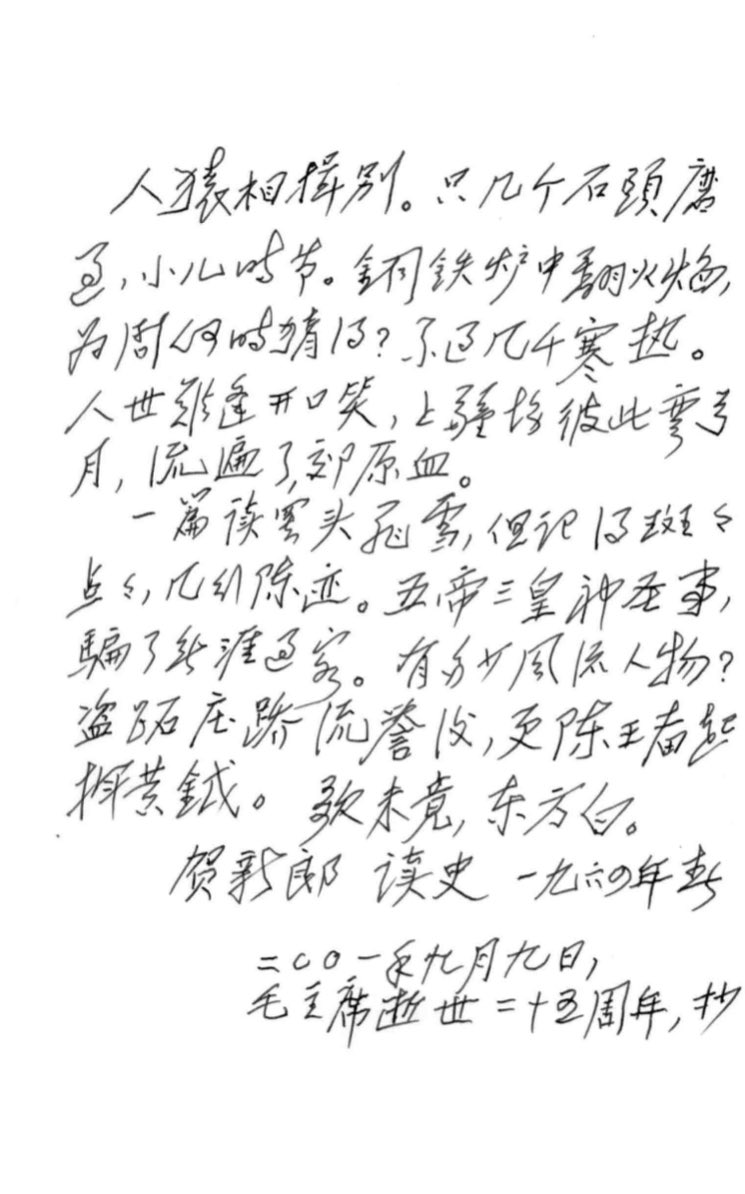 人猿相揖别。只几个石頭磨
过,小儿时节。銅鉄炉中翻火焰,
为问何时猜得?不过几千寒热。
人世难逢开口笑,上疆场彼此弯弓
月,流遍了,郊原血。
一篇读罢头飞雪,但记得斑々
点々,几行陈迹。五帝三皇神圣事,
骗了无涯过客。有多少风流人物?
盗跖庄蹻流誉后,更陈王奋起
挥黄鉞。歌未竟,东方白。
贺新郎 读史 一九六四年春
二〇〇一年九月九日,
毛主席逝世二十五周年,抄